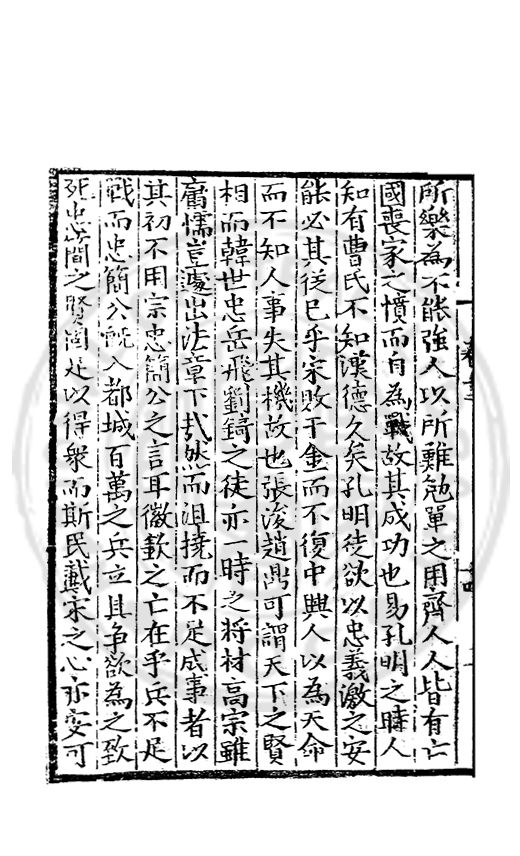 所樂為不能強人以所難勉單之用齊人人皆有亡
國喪家之憤而自為戰故其成功也易孔明之時人
知有曹氏不知漢德久矣孔明徒欲以忠義激之安
能必其從已乎宋敗于金而不復中興人以為天命
而不知人事失其機故也張浚趙鼎可謂天下之賢
相而韓世忠岳飛劉錡之徒亦一時之將材高宗雖
庸懦豈遽出法章下哉然而沮撓而不足成事者以
其初不用宗忠簡公之言耳徽欽之亡在乎兵不足
戰而忠簡公既入都城百萬之兵立具争欲為之致
死忠簡之賢固足以得衆而斯民戴宋之心亦安可